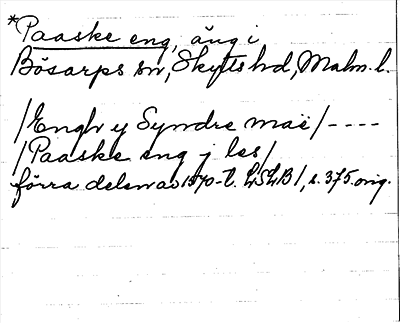 *Paaske eng, äng i
Bösarps sn, Skytts hd, Malm. l.
/Engh y Syndre maë/ ----
/Paaske eng j les/
förra delen av 1570-t. LSLB1, s. 375. orig.